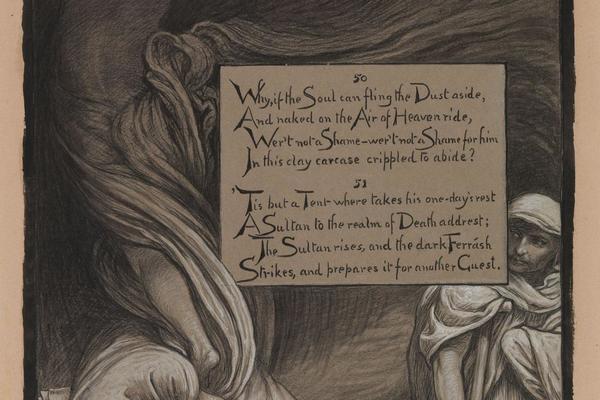 50
Why, if the Soul can fling the Dust aside,
And naked on the Air of Heaven ride,
Wer't not a Shame-wer't not a Shame for him
In this clay carcase crippled to abide?
51
'Tis but a Tent where takes his one-day's rest
A Sultan to the realm of Death addrest;
The Sultan rises, and the dark Ferrásh
Strikes, and prepares it for another Guest.